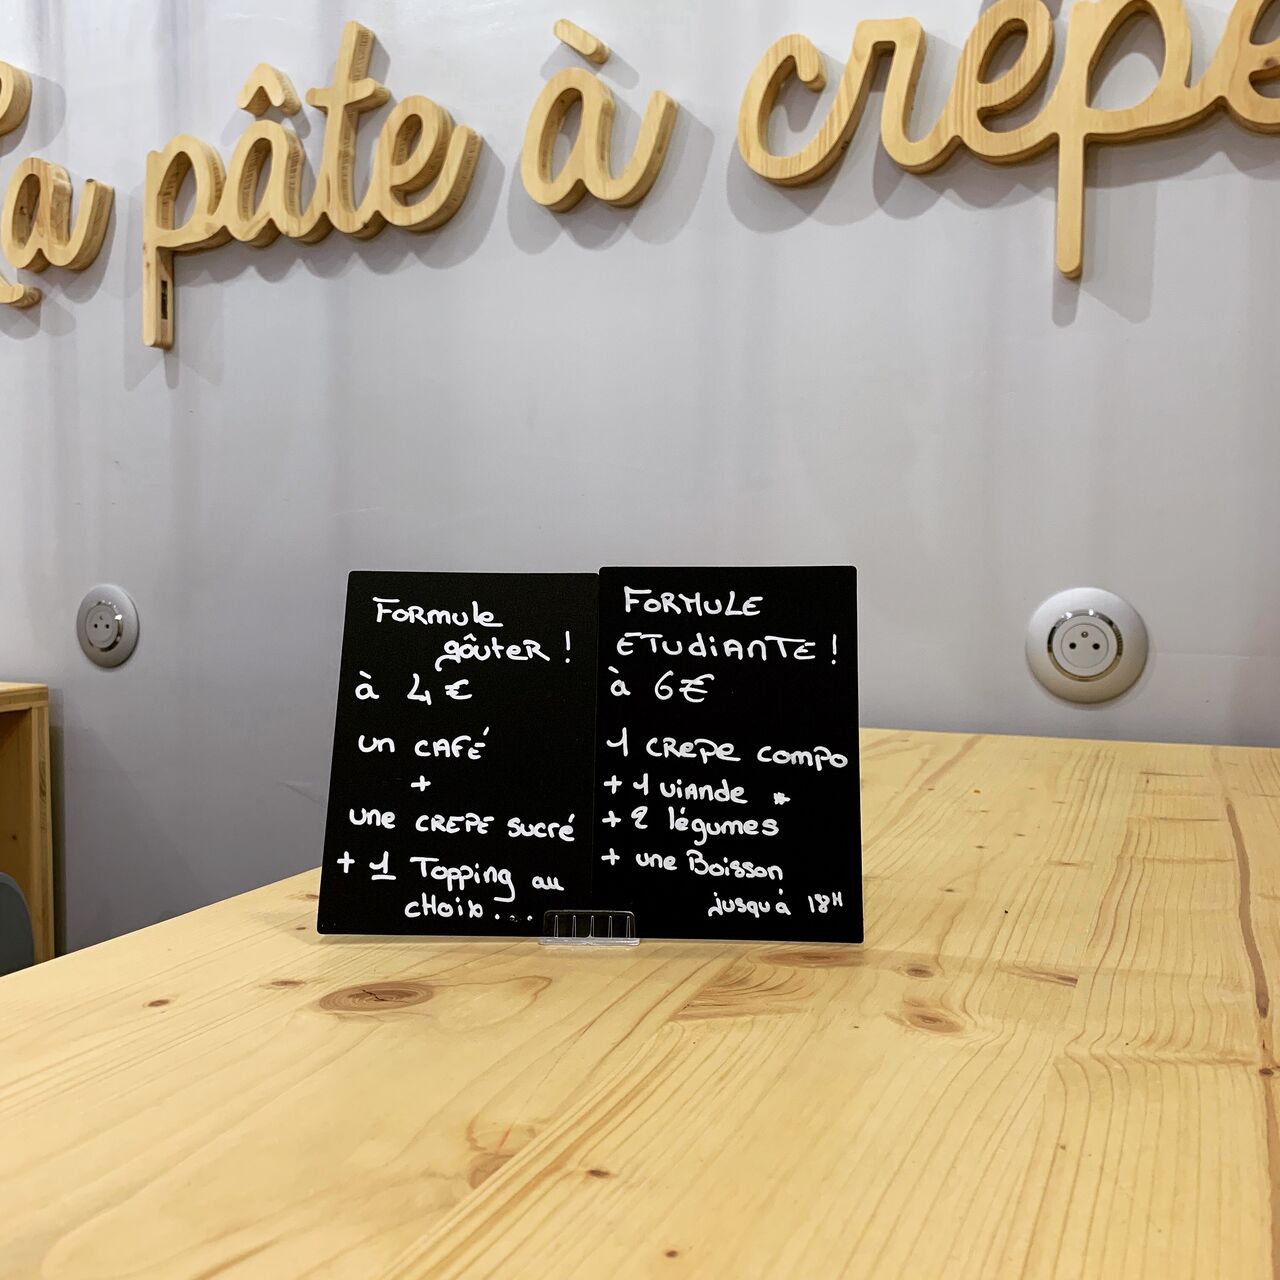 La pâte à crêpe
Formule
goûter !
à 4 €
un CAFÉ
+
une CREPE sucré
+ 1 Topping au
choix...
FORMULE
ETUDIANTE !
à 6€
1 CREPE compo
+ 1 viande *
+ 2 légumes
+ une Boisson
jusqu'à 18H